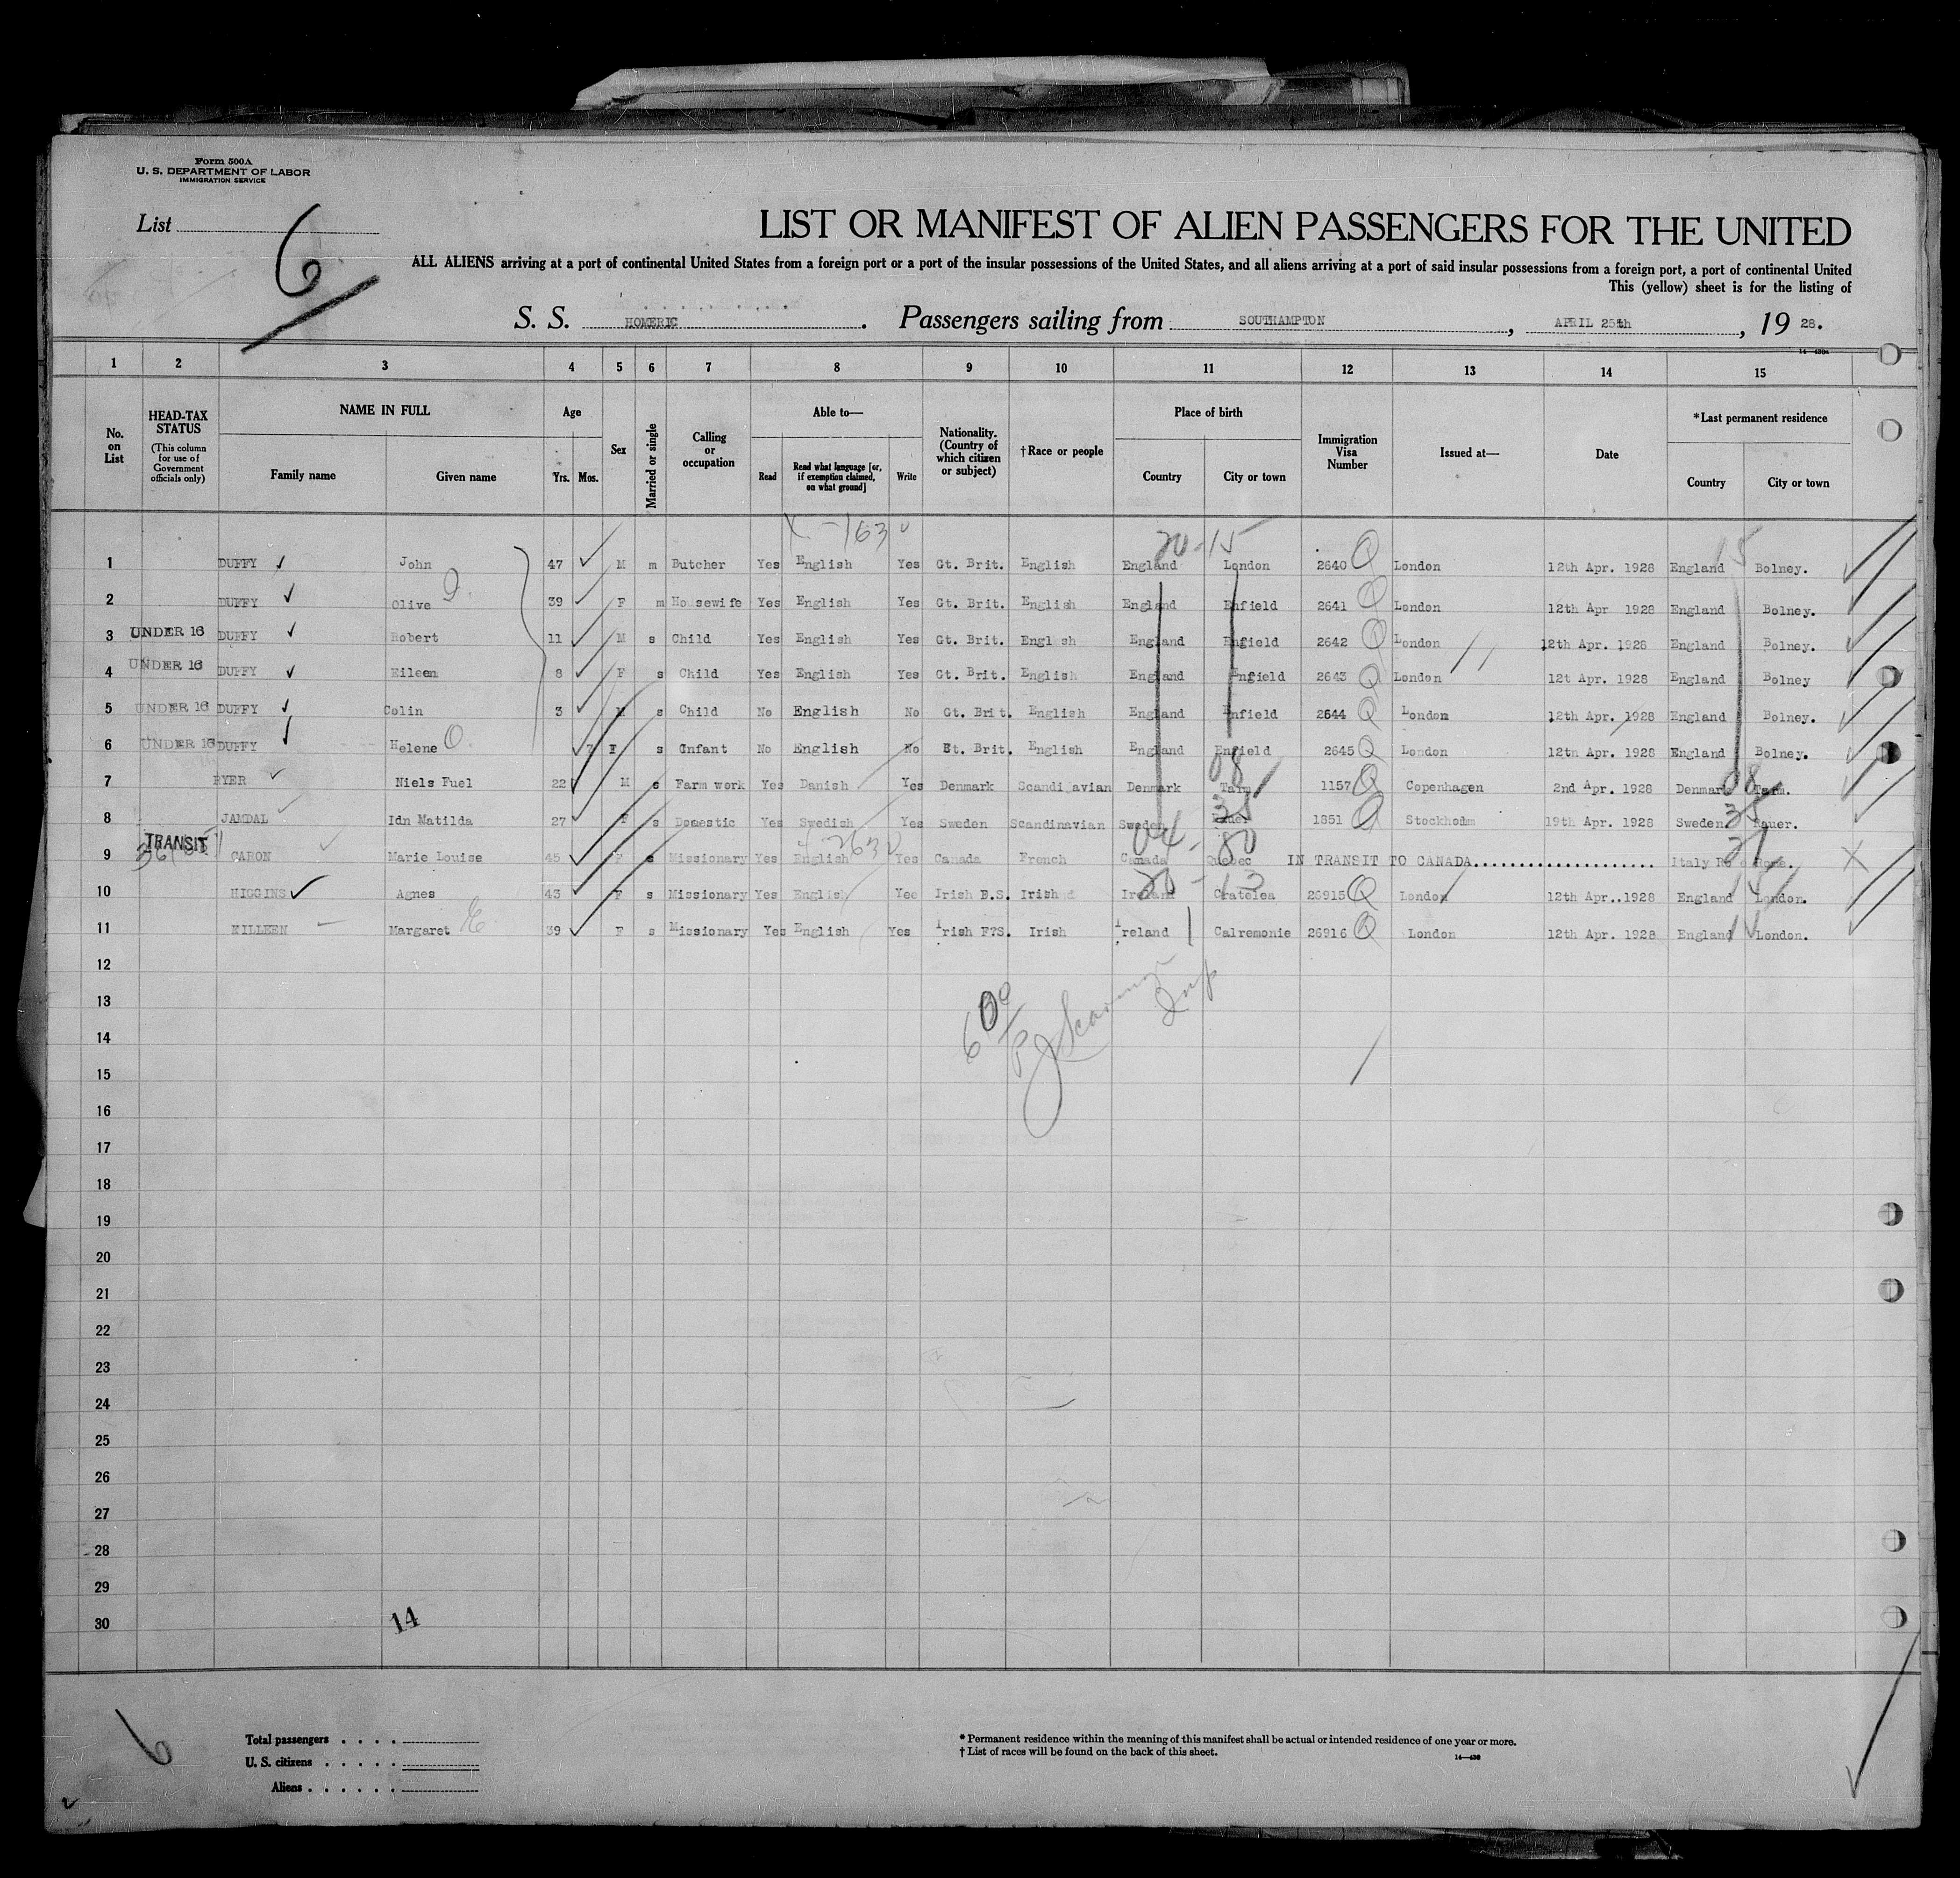 Form 500A
U. S. DEPARTMENT OF LABOR
IMMIGRATION SERVICE
List 6
LIST OR MANIFEST OF ALIEN PASSENGERS FOR THE UNITED
ALL ALIENS arriving at a port of continental United States from a foreign port or a port of the insular possessions of the United States, and all aliens arriving at a port of said insular possessions from a foreign port, a port of continental United
This (yellow) sheet is for the listing of
S. S. HOMERIC. Passengers sailing from SOUTHAMPTON, APRIL 25th, 19 28.
1 2 3 4 5 6 7 8 9 10 11 12 13 14 15
No. on List
HEAD-TAX STATUS (This column for use of Government officials only)
NAME IN FULL
Family name Given name
Age
Yrs. Mos.
Sex
Married or single
Calling or occupation
Able to—
Read
Read what language [or, if exemption claimed, on what ground]
Write
Nationality. (Country of which citizen or subject)
†Race or people
Place of birth
Country City or town
Immigration Visa Number
Issued at—
Date
*Last permanent residence
Country City or town
X - 163 20-15 15
1 DUFFY John 47 M m Butcher Yes English Yes Gt. Brit. English England London 2640 London 12th Apr. 1928 England Bolney.
2 DUFFY Olive 39 F m Housewife Yes English Yes Gt. Brit. English England Enfield 2641 London 12th Apr 1928 England Bolney.
3 UNDER 16 DUFFY Robert 11 M s Child Yes English Yes Gt. Brit. English England Enfield 2642 London 12th Apr. 1928 England Bolney.
4 UNDER 16 DUFFY Eileen 8 F s Child Yes English Yes Gt. Brit. English England Enfield 2643 London 12t Apr. 1928 England Bolney
5 UNDER 16 DUFFY Colin 3 M s Child No English No Gt. Brit. English England Enfield 2644 London 12th Apr. 1928 England Bolney.
6 UNDER 16 DUFFY Helene 7 F s Infant No English No Gt. Brit. English England Enfield 2645 London 12th Apr. 1928 England Bolney.
7 Niels Fuel 22 M s Farm work Yes Danish Yes Denmark Scandinavian Denmark Tarm 08 1157 Copenhagen 2nd Apr. 1928 Denmark 08 Tarm.
8 JAMDAL Idn Matilda 27 F s Domestic Yes Swedish Yes Sweden Scandinavian Sweden 1851 Stockholm 19th Apr. 1928 Sweden
9 TRANSIT CARON Marie Louise 45 F s Missionary Yes English Yes Canada French Canada Quebec 04-80 IN TRANSIT TO CANADA.................... Italy Rome.
10 HIGGINS Agnes 43 F s Missionary Yes English Yes Irish B.S. Irish Ireland Cratelea 26915 London 12th Apr..1928 England London.
11 KILLEEN Margaret 39 F s Missionary Yes English Yes Irish F?S. Irish Ireland Calremonie 26916 London 12th Apr. 1928 England London.
12
13
14
15
16
17
18
19
20
21
22
23
24
25
26
27
28
29
30
14
6
Total passengers . . . .
U. S. citizens . . . . .
Aliens . . . . . .
* Permanent residence within the meaning of this manifest shall be actual or intended residence of one year or more.
† List of races will be found on the back of this sheet.
14—430